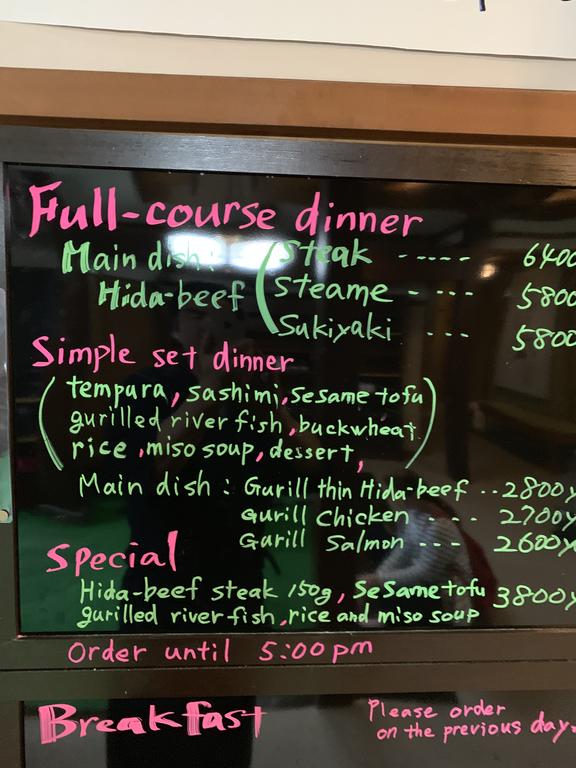 Full-course dinner
Main dish: steak ----- 6400
Hida-beef steame - --- 5800
Sukiyaki --- 5800
Simple set dinner
(tempura, sashimi, sesame tofu)
gurilled river fish, buckwheat
rice, miso soup, dessert,
Main dish: Gurill thin Hida-beef ..2800y
gurill chicken - --- 2700y
Gurill Salmon --- 2600y
Special
Hida-beef steak 150g, sesame tofu 3800y
gurilled river fish, rice and miso soup
Order until 5:00pm
Breakfast Please order
on the previous day